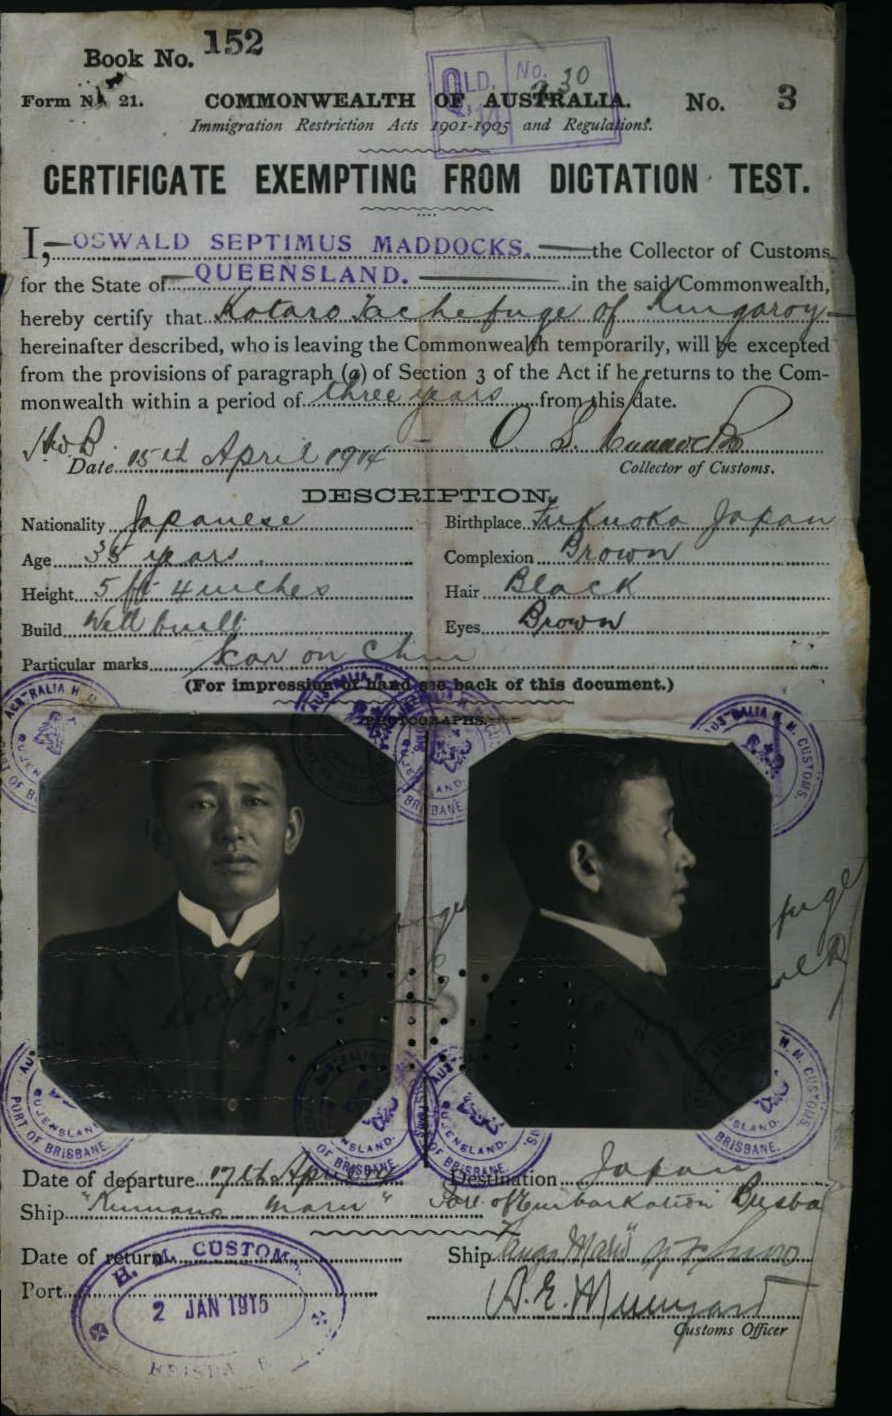 Book No. 152
QLD. No. 30
Form No. 21. COMMONWEALTH OF AUSTRALIA. No. 3
Immigration Restriction Acts 1901-1905 and Regulations.
CERTIFICATE EXEMPTING FROM DICTATION TEST.
I, OSWALD SEPTIMUS MADDOCKS. the Collector of Customs
for the State of QUEENSLAND. in the said Commonwealth,
hereby certify that Kotaro Tachefuge of Kingaroy
hereinafter described, who is leaving the Commonwealth temporarily, will be excepted
from the provisions of paragraph (a) of Section 3 of the Act if he returns to the Com-
monwealth within a period of three years from this date.
O. S. Maddocks
Date 15th April 1914 Collector of Customs.
DESCRIPTION.
Nationality Japanese Birthplace Fukuoka Japan
Age 35 years Complexion Brown
Height 5 ft 4 inches Hair Black
Build Well built Eyes Brown
Particular marks Scar on Chin
(For impression of hand see back of this document.)
PHOTOGRAPHS.
AUSTRALIA H.M. CUSTOMS.
QUEENSLAND.
PORT OF BRISBANE.
Date of departure 17th April 14 Destination Japan
Ship "Kumano Maru" Port of Embarkation Brisba
Date of return Ship Maru
Port
H. M. CUSTOMS
2 JAN 1915
BRISBANE
Customs Officer